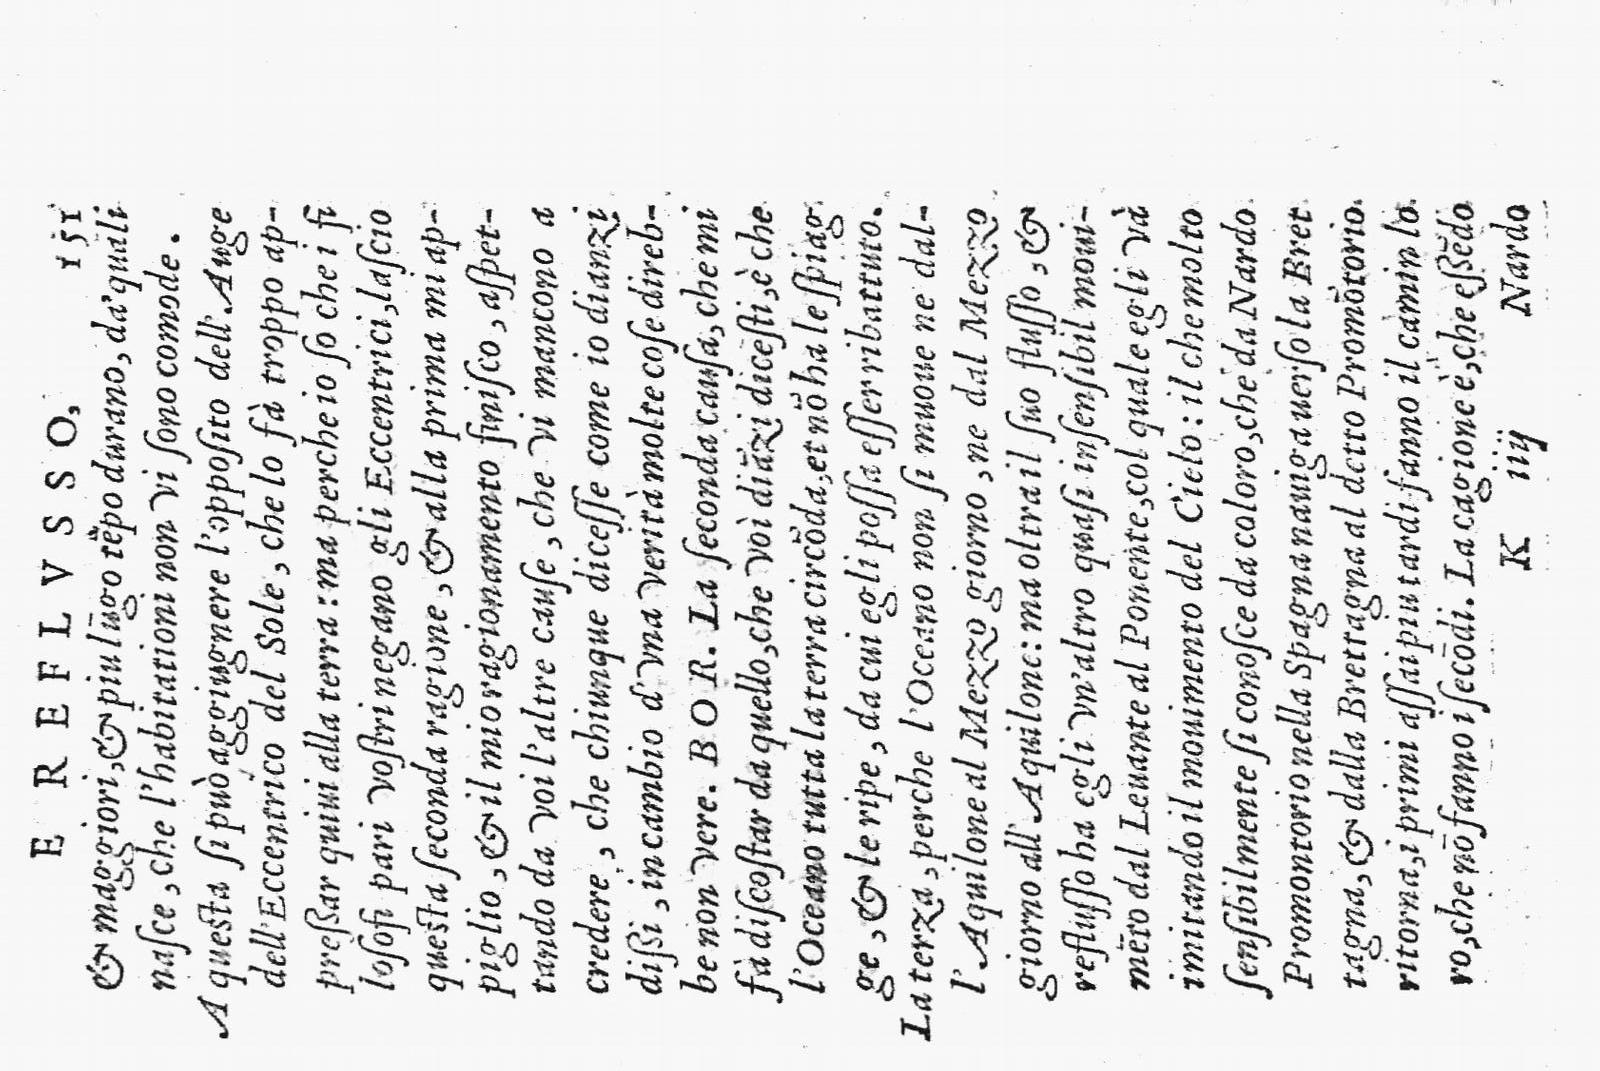 E REFLVSSO, 151
& maggiori, & piu lũgo tẽpo durano, da' quali
naſce, che l'habitationi non vi ſono comode.
A queſta ſi può aggiugnere l'oppoſito dell'Auge
dell'Eccentrico del Sole, che lo fà troppo ap-
preſſar quiui alla terra: ma perche io ſo che i fi
loſofi pari voſtri negano gli Eccentrici, laſcio
queſta ſeconda ragione, & alla prima mi ap-
piglio, & il mio ragionamento finiſco, aſpet-
tando da voi l'altre cauſe, che vi mancono a
credere, che chiunque diceſſe come io dianzi
diſſi, in cambio d'vna verità molte coſe direb-
be non vere. BOR. La ſeconda cauſa, che mi
fà diſcoſtar da quello, che voì diãzi diceſti, è che
l'Oceano tutta la terra circõda, et nõ ha le ſpiag
ge, & le ripe, da cui egli poſſa eſſer ribattuto.
La terza, perche l'Oceano non ſi muoue ne dal-
l'Aquilone al Mezzo giorno, ne dal Mezzo
giorno all'Aquilone: ma oltra il ſuo fluſſo, &
refluſſo ha egli vn'altro quaſi inſenſibil moui-
mẽto dal Leuante al Ponente, col quale egli và
imitando il mouimento del Cielo: il che molto
ſenſibilmente ſi conoſce da coloro, che da Nardo
Promontorio nella Spagna nauiga uerſo la Bret
tagna, & dalla Brettagna al detto Promõtorio
ritorna, i primi aſſai piu tardi fanno il camin lo
ro, che nõ fanno i ſecõdi. La cagione è, che eſſẽdo
K iiij Nardo